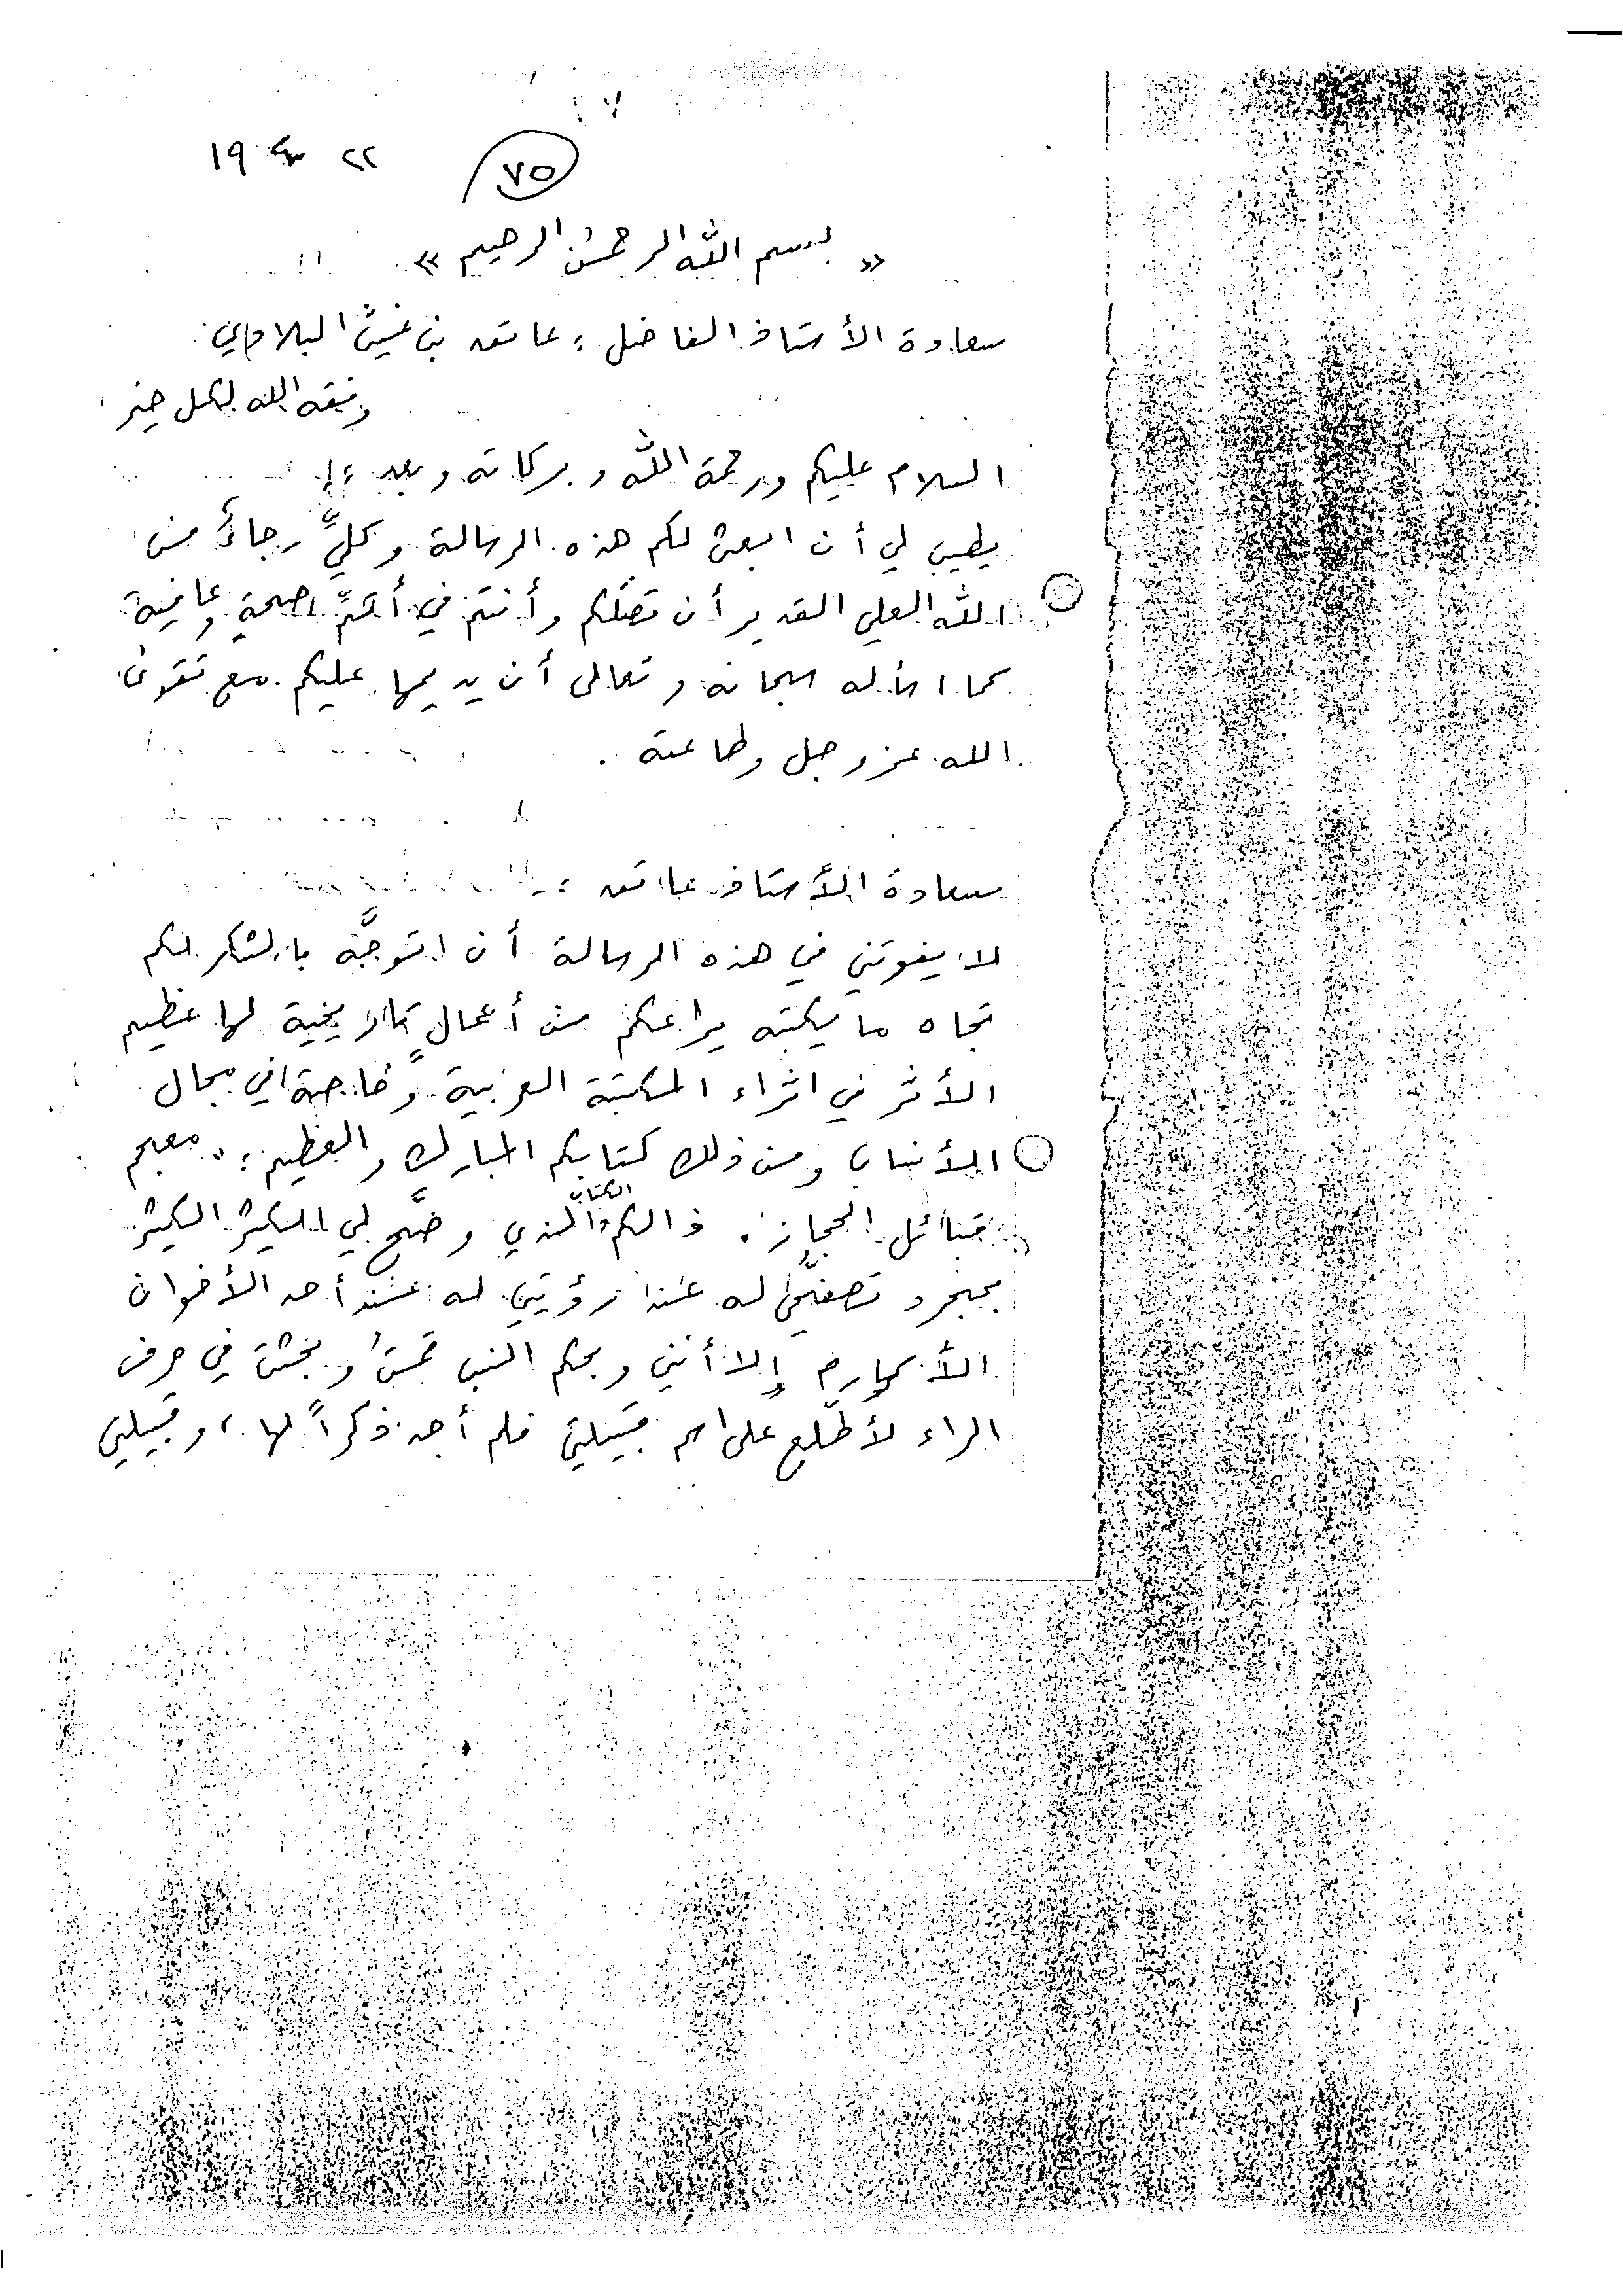 ٧٥
« بسم الله الرحمن الرحيم »
سعادة الأستاذ الفاضل : عاتق بن غيث البلادي
وفقه الله لكل خير
السلام عليكم ورحمة الله وبركاته وبعد :
يطيب لي أن ابعث لكم هذه الرسالة وكليَّ رجاءٌ من
الله العلي القدير أن تصلكم وأنتم في أتمّ صحةٍ وعافية
كما اسأله سبحانه وتعالى أن يديمها عليكم مع تقوى
الله عز وجل وطاعته .
سعادة الأستاذ عاتق :
لا يفوتني في هذه الرسالة أن اتوجَّه بالشكر لكم
تجاه ما يكتبه يراعكم من أعمالٍ تاريخية لها عظيم
الأثر في اثراء المكتبة العربية وخاصةً في مجال
الأنساب ومن ذلك كتابكم المبارك والعظيم : " معجم
قبائل الحجاز . ذالكم الكتاب الذي وضَّح لي الكثير الكثير
بمجرد تصفحي له عند رؤيتي له عند أحد الأخوان
الأكارم إلا أنني وبحكم النسب قمتُ وبحثت في حرف
الراء لأطّلع على اسم قبيلتي فلم أجد ذكراً لها ، وقبيلتي